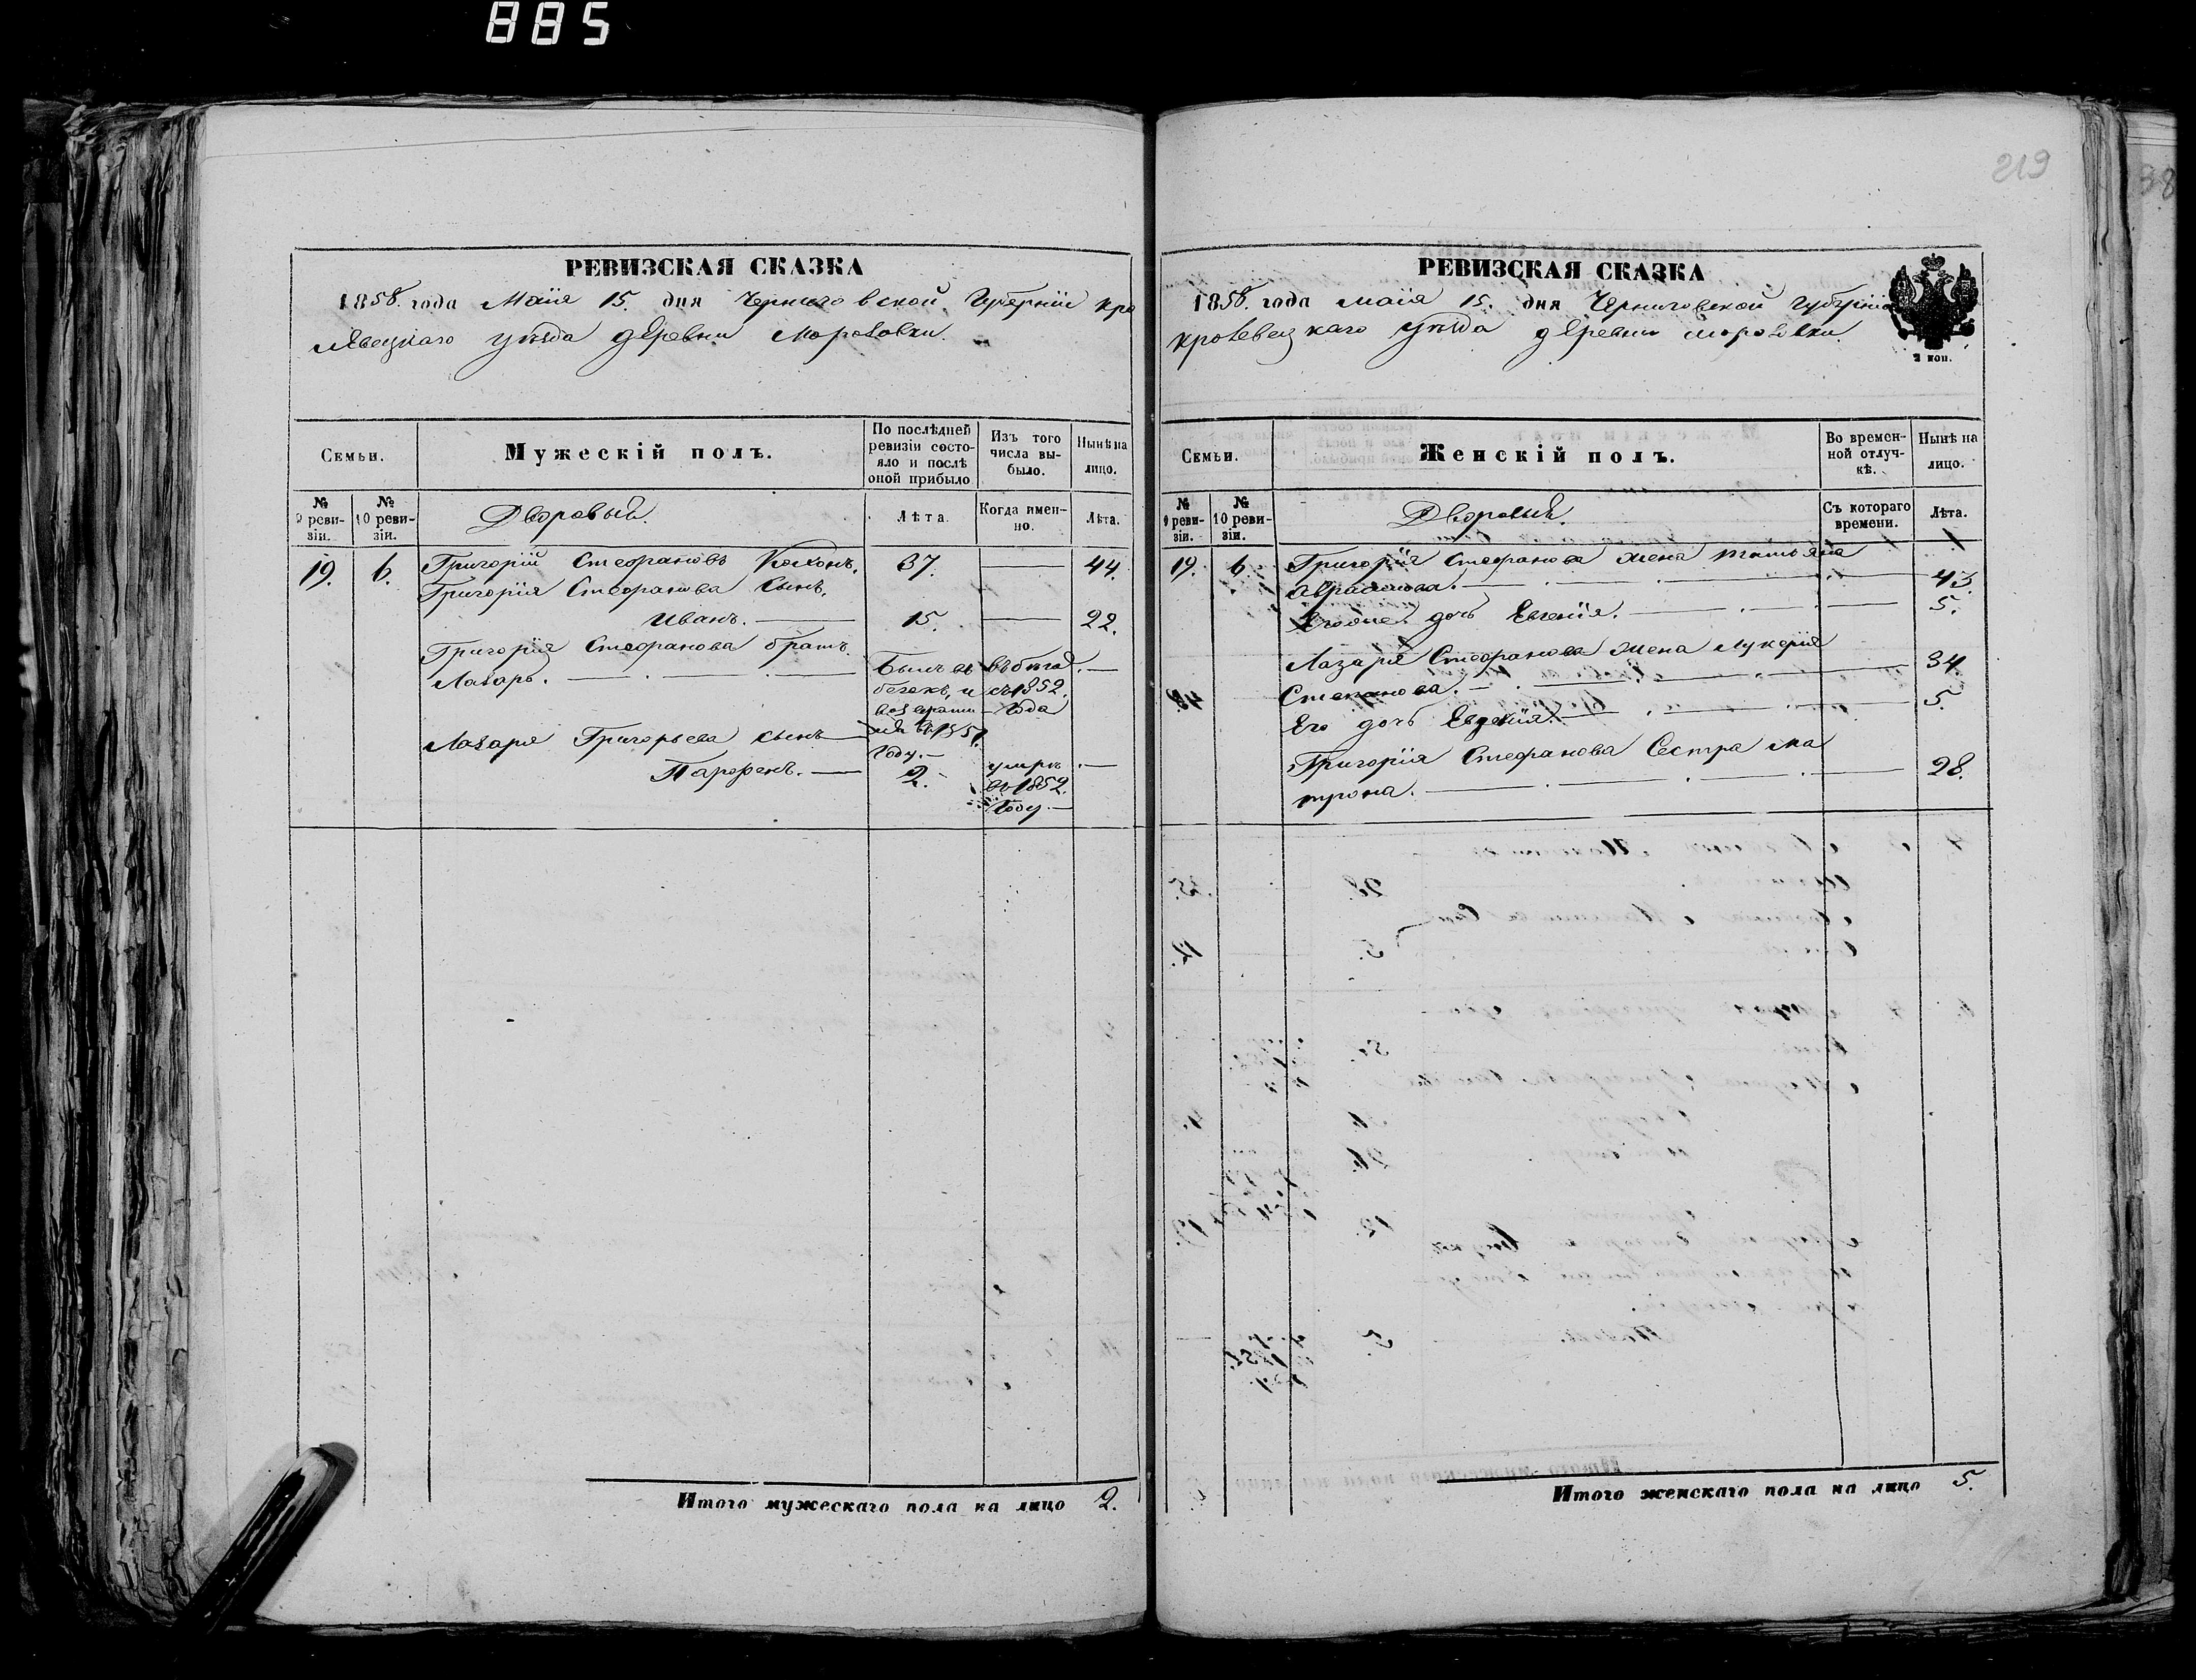 885
219
РЕВИЗСКАЯ СКАЗКА
1858. года Маія 15. дня Черниговской Губерніи Кро
левецкаго уѣзда деревни Морозовки.
Семьи.
Мужескій полъ.
По послѣдней ревизіи состояло и послѣ оной прибыло
Изъ того числа выбыло.
Нынѣ на лицо.
№ 9 ревизіи.
№ 10 ревизіи.
Дворовый.
Лѣта.
Когда именно.
Лѣта.
19. 6. Григорій Стефановъ 37. — 44.
Григорія Стефанова сынъ.
Иванъ. — 15. — 22.
Григорія Стефанова братъ.
Лазарь. — Былъ въ бегахъ, и возврати въ 1851 году. —
въ бегах съ 1852. года —
Лазаря Григорьева сынъ
Парфенъ. — 2. умръ въ 1852. году. —
Итого мужескаго пола на лицо 2.
РЕВИЗСКАЯ СКАЗКА
1858. года маія 15. дня Черниговской губерніи
кролевецкаго уѣзда деревни морозовки.
2 коп.
Семьи.
Женскій полъ.
Во временной отлучкѣ.
Нынѣ на лицо.
№ 9 ревизіи.
№ 10 ревизіи.
Дворовый.
Съ котораго времени.
Лѣта.
19. 6. Григорія Стефанова жена татьяна
Аврамова. — 43.
дочь Евгенія. — 5.
Лазаря Стефанова жена лукерія
Степанова. — 34.
Его дочь Евдокія. — 5.
Григорія Стефанова Сестра ма
трона. — 28.
Итого женскаго пола на лицо 5.